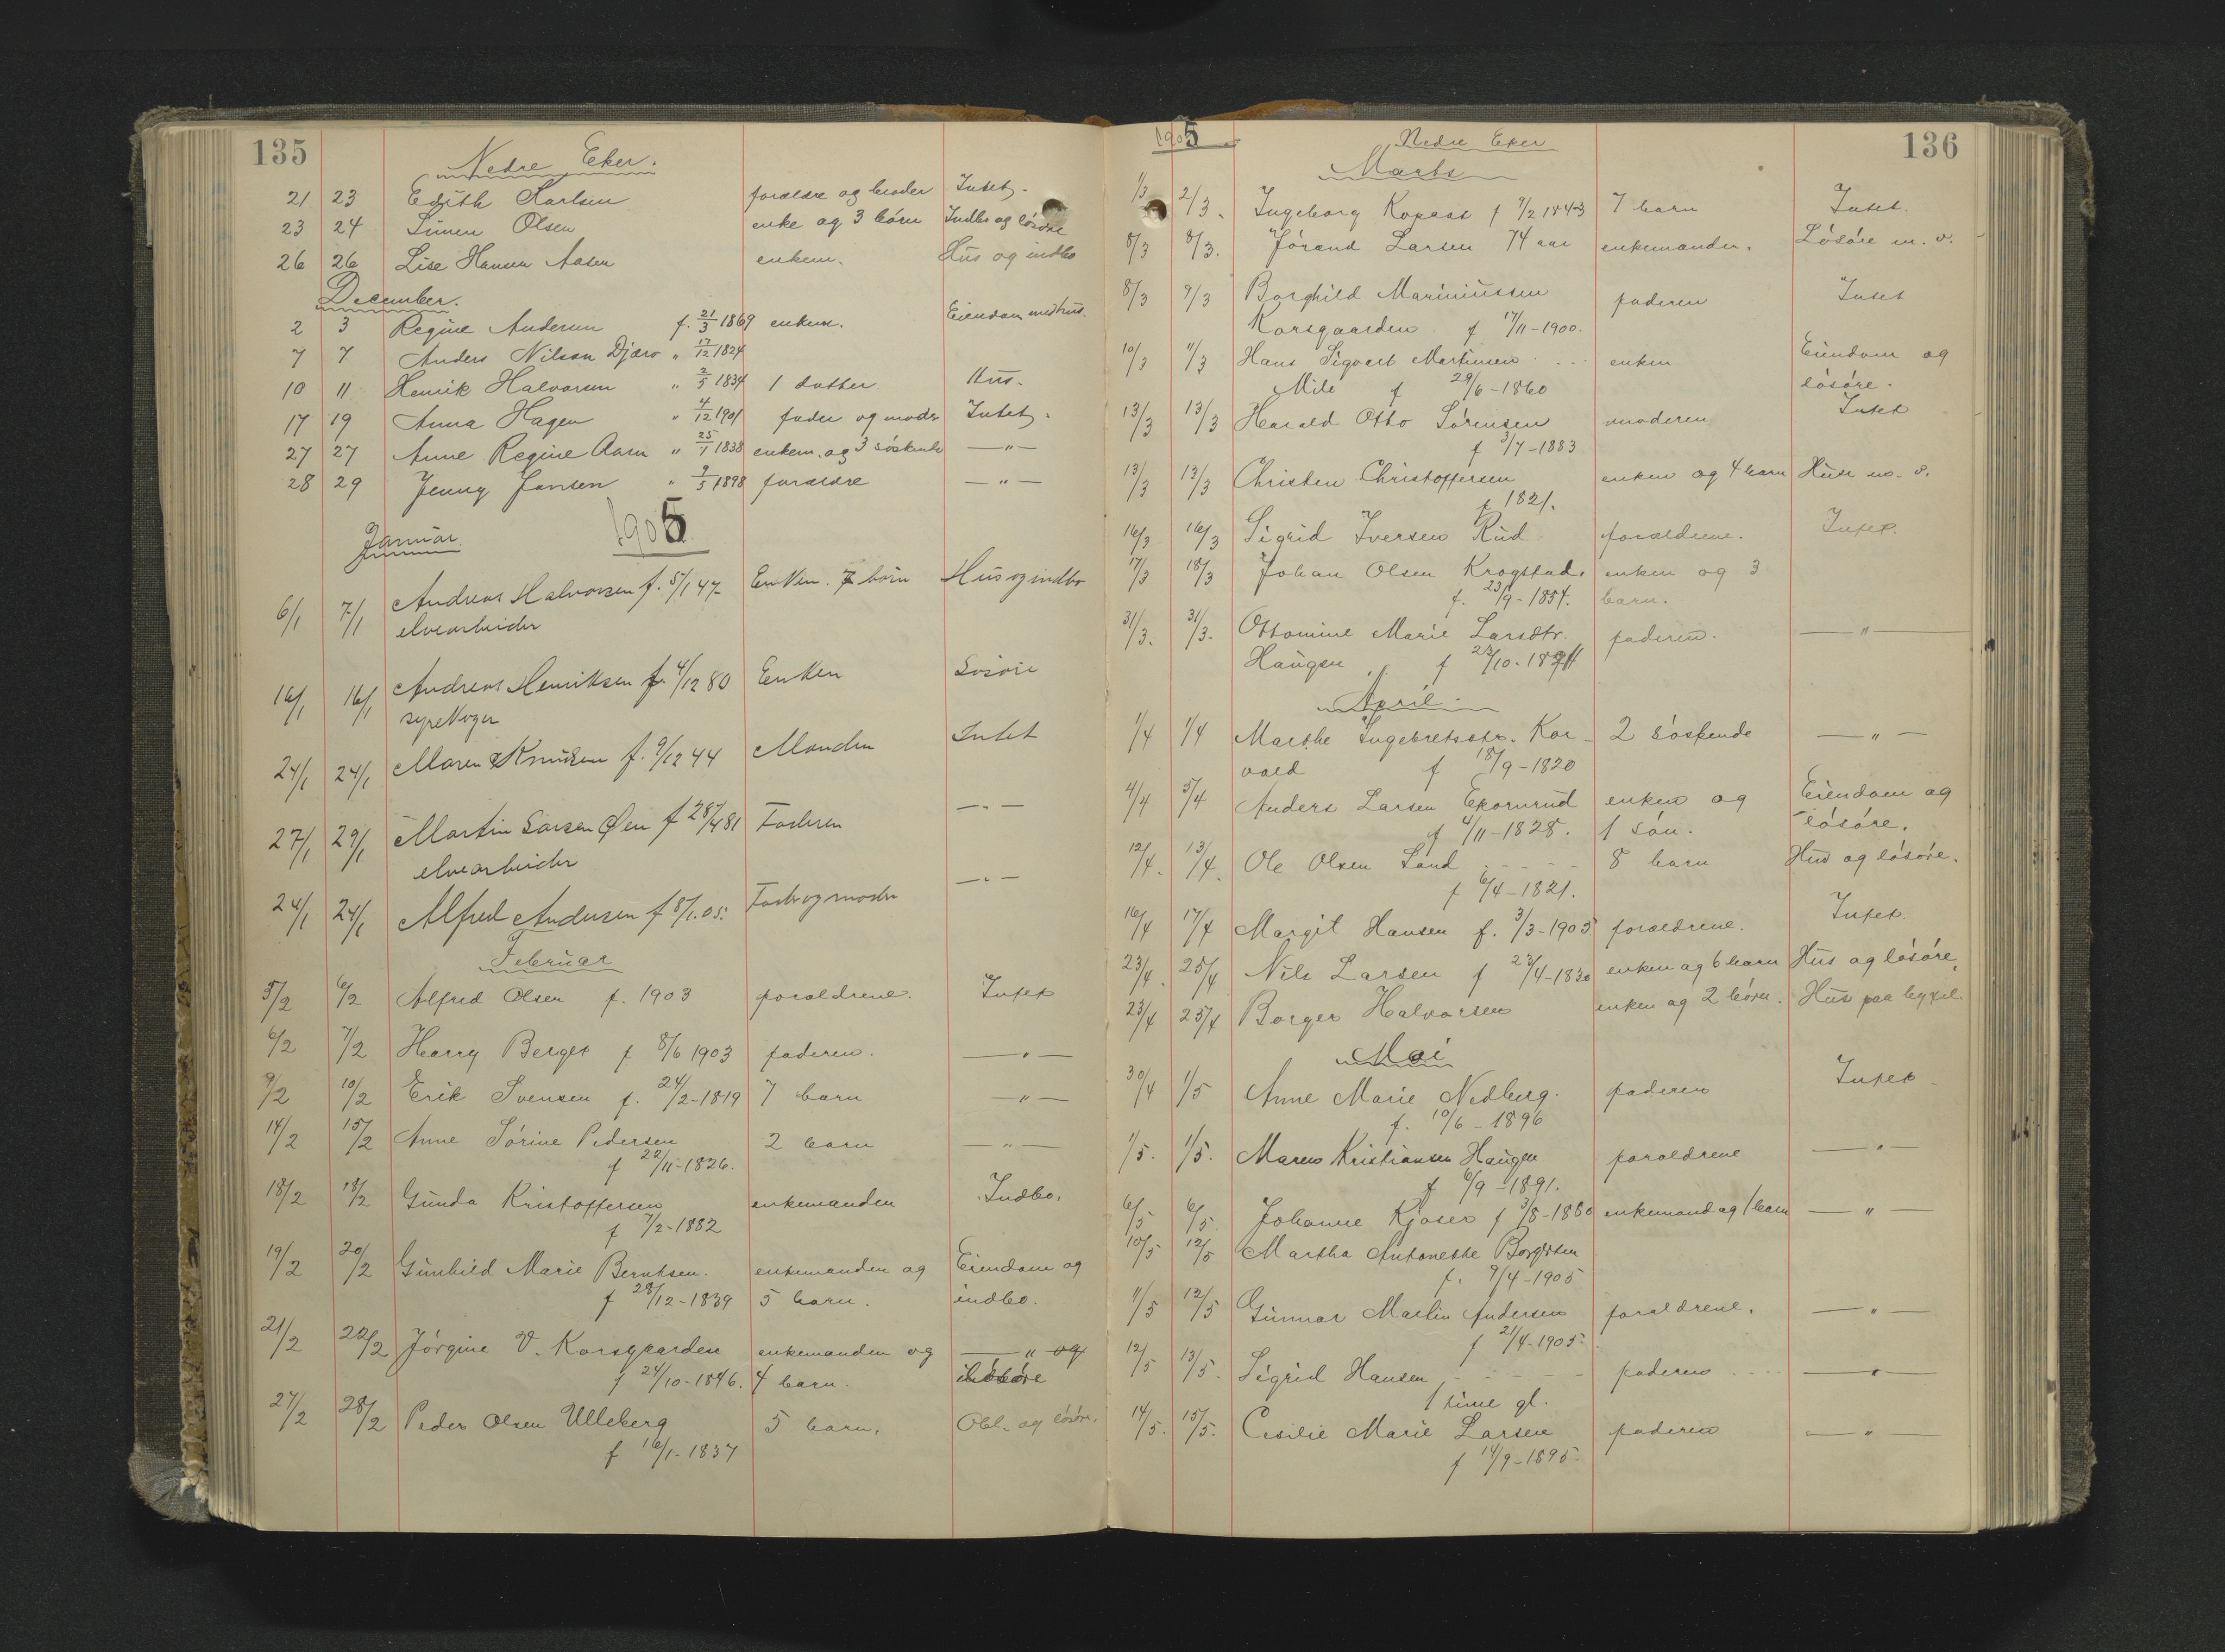 135
Nedre Eker.
21 23 Edith Karlsen forældre og broder Intet.
23 24 Simen Olsen enke og 3 börn Indbo og lösöre
26 26 Lise Hansen Aasen enkem. Hus og indbo
December.
2 3 Regine Andersen f. 21/3 1869 enkem. Eiendom med hus.
7 7 Anders Nilsen Djæro " 17/12 1824
10 11 Henrik Halvorsen " 2/5 1834 1 datter Hus.
17 19 Anna Hagen " 4/12 1901 fader og moder Intet.
27 27 Anne Regine Aasen " 25/1 1838 enkem. og 3 söskende — " —
28 29 Jenny Jansen " 9/5 1898 forældre — " —
1905
Januar.
6/1 7/1 Andreas Halvorsen f. 5/1 47 Enken. 7 börn Hus og indbo
elvearbeider
16/1 16/1 Andreas Henriksen f. 4/12 80 Enken Lösöre
syrekoger
24/1 24/1 Maren Knudsen f. 9/12 44 Manden Intet
27/1 29/1 Martin Larsen Øen f 28/4 81 Faderen — " —
elvearbeider
24/1 24/1 Alfred Andersen f 8/1.05. Fader og moder — " —
Februar
5/2 6/2 Alfred Olsen f. 1903 forældrene. Intet
6/2 7/2 Harry Berger f 8/6 1903 faderen. — " —
9/2 10/2 Erik Svensen f. 24/2-1819 7 barn — " —
14/2 15/2 Anne Sörine Pedersen 2 barn — " —
f 22/11-1826.
18/2 18/2 Gunda Kristoffersen enkemanden Indbo.
f 7/2-1882
19/2 20/2 Gunhild Marie Berntsen. enkemanden og Eiendom og
f 28/12-1839 5 barn. indbo.
21/2 22/2 Jörgine V. Korsgaarden enkemanden og — " og
f 24/10-1846. 4 barn.
27/2 28/2 Peder Olsen Ulleberg 5 barn. Obl. og lösöre.
f 16/1-1837
1905 Nedre Eker 136
Marts
1/3 2/3. Ingeborg Kopaas f 9/2 1843 7 barn Intet.
8/3 8/3. Jörand Larsen 74 aar enkemanden. Lösöre m. v.
8/3 9/3 Borghild Mariniussen faderen Intet
Korsgaarden. f 17/11-1900.
10/3 11/3 Hans Sigvart Martinsen enken Eiendom og
Mile f 29/6-1860 lösöre.
13/3 13/3 Harald Otto Sörensen moderen Intet
f 3/7-1883
13/3 13/3 Christen Christoffersen enken og 4 barn Huse m. v.
f 1821.
16/3 16/3 Sigrid Iversen Rud forældrene. Intet.
17/3 18/3 Johan Olsen Krogstad. enken og 3
f. 23/9-1854. barn.
31/3. 31/3. Ottomine Marie Larsdtr. faderen. — " —
Haugen f 23/10-1894
April.
1/4 1/4 Marthe Ingebretsdtr. Kor- 2 söskende — " —
vald f 18/9-1820
4/4 5/4 Anders Larsen Ekornrud enken og Eiendom og
f 4/11-1828. 1 sön. lösöre.
12/4. 13/4. Ole Olsen Sand 8 barn Hus og lösöre.
f 6/4-1821.
16/4 17/4 Margit Hansen f. 3/3-1905 forældrene. Intet.
23/4. 25/4 Nils Larsen f 23/4-1830 enken og 6 barn Hus og lösöre.
23/4 25/4 Borger Halvorsen enken og 2 börn. Hus paa bygsel.
Mai
30/4 1/5 Anne Marie Nedberg. faderen Intet
f. 10/6-1896
1/5. 1/5. Maren Kristiansen Haugen forældrene — " —
f 6/9-1891.
6/5 6/5. Johanne Kjöser f 3/8-1880 enkemand og 1 barn — " —
10/5 12/5 Martha Antonette Borgersen
f. 9/4-1905
11/5 12/5 Gunnar Martin Andersen forældrene. — " —
f 21/4-1905.
12/5 13/5. Sigrid Hansen faderen — " —
1 time gl.
14/5. 15/5. Cecilie Marie Larsen faderen — " —
f 14/9-1895.